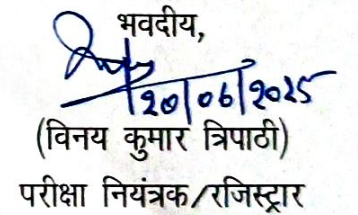 भवदीय,
20/06/2025
(विनय कुमार त्रिपाठी)
परीक्षा नियंत्रक/रजिस्ट्रार